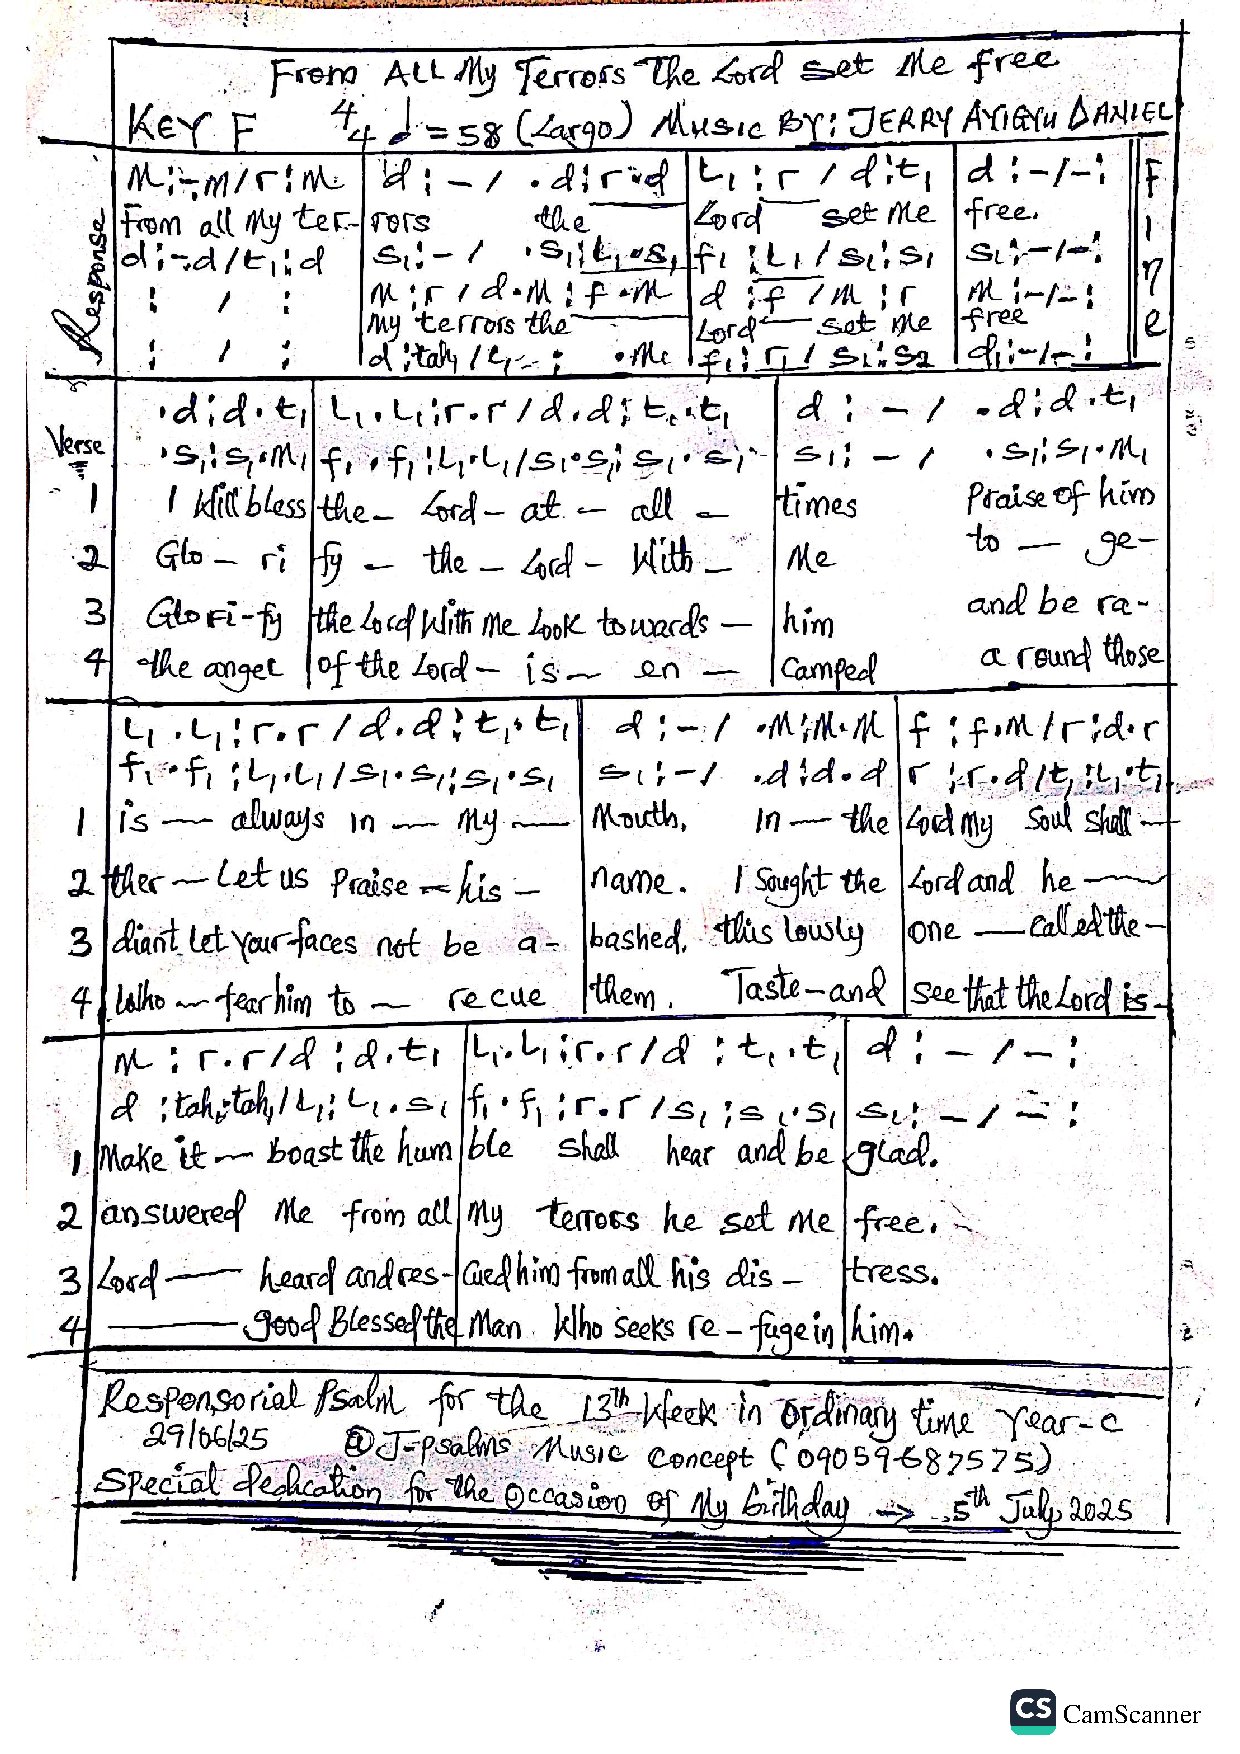 From ALL My Terrors The Lord set Me free
KEY F 4/4 ♩ = 58 (Largo) Music BY: JERRY AYIGYU DANIEL
Response
M:-.m/r:m. d:-/ .d:r.d L₁:r/d:t₁ d:-/-:
From all My ter- rors the Lord set Me free.
d:-.d/t₁:d s₁:-/ .s₁:L₁.s₁ f₁:L₁/s₁:s₁ s₁:-/-:
: / : m:r/d.m:f.m d:f/m:r m:-/-:
My terrors the Lord set Me free
: / : d:tah₁/L₁-: .Me f₁:r₁/s₁:s₂ d₁:-/-:
Fine
Verse
.d:d.t₁ L₁.L₁:r.r/d.d:t₁.t₁ d:-/ .d:d.t₁
.s₁:s₁.m₁ f₁.f₁:L₁.L₁/s₁.s₁:s₁.s₁ s₁:-/ .s₁:s₁.m₁
1 I Will bless the- Lord- at- all - times Praise of him
2 Glo- ri fy - the - Lord - With - Me to - ge-
3 Glori-fy the Lord With Me Look towards - him and be ra-
4 the anger of the Lord - is - en - camped a round those
L₁.L₁:r.r/d.d:t₁.t₁ d:-/ .m:m.m f:f.m/r:d.r
f₁.f₁:L₁.L₁/s₁.s₁:s₁.s₁ s₁:-/ .d:d.d r:r.d/t₁:L₁.t₁
1 is - always in - My - Mouth. In - the Lord My Soul Shall -
2 ther - Let us Praise - his - name. I Sought the Lord and he -
3 diant Let Your faces not be a- bashed. this lously one - called the -
4 Who - fear him to - recue them. Taste - and see that the Lord is -
m:r.r/d:d.t₁ L₁.L₁:r.r/d:t₁.t₁ d:-/-:
d:tah₁.tah₁/L₁:L₁.s₁ f₁.f₁:r.r/s₁:s₁.s₁ s₁:-/-:
1 Make it - boast the hum ble shall hear and be glad.
2 answered Me from all My terrors he set Me free.
3 Lord - heard and res- cued him from all his dis - tress.
4 - good Blessed the Man Who seeks re - fuge in him.
Responsorial Psalm for the 13th Week in Ordinary time Year-C
29/06/25 @J-psalms Music Concept (09059687575)
Special dedication for the Occasion of My birthday → 5th July, 2025
CS CamScanner